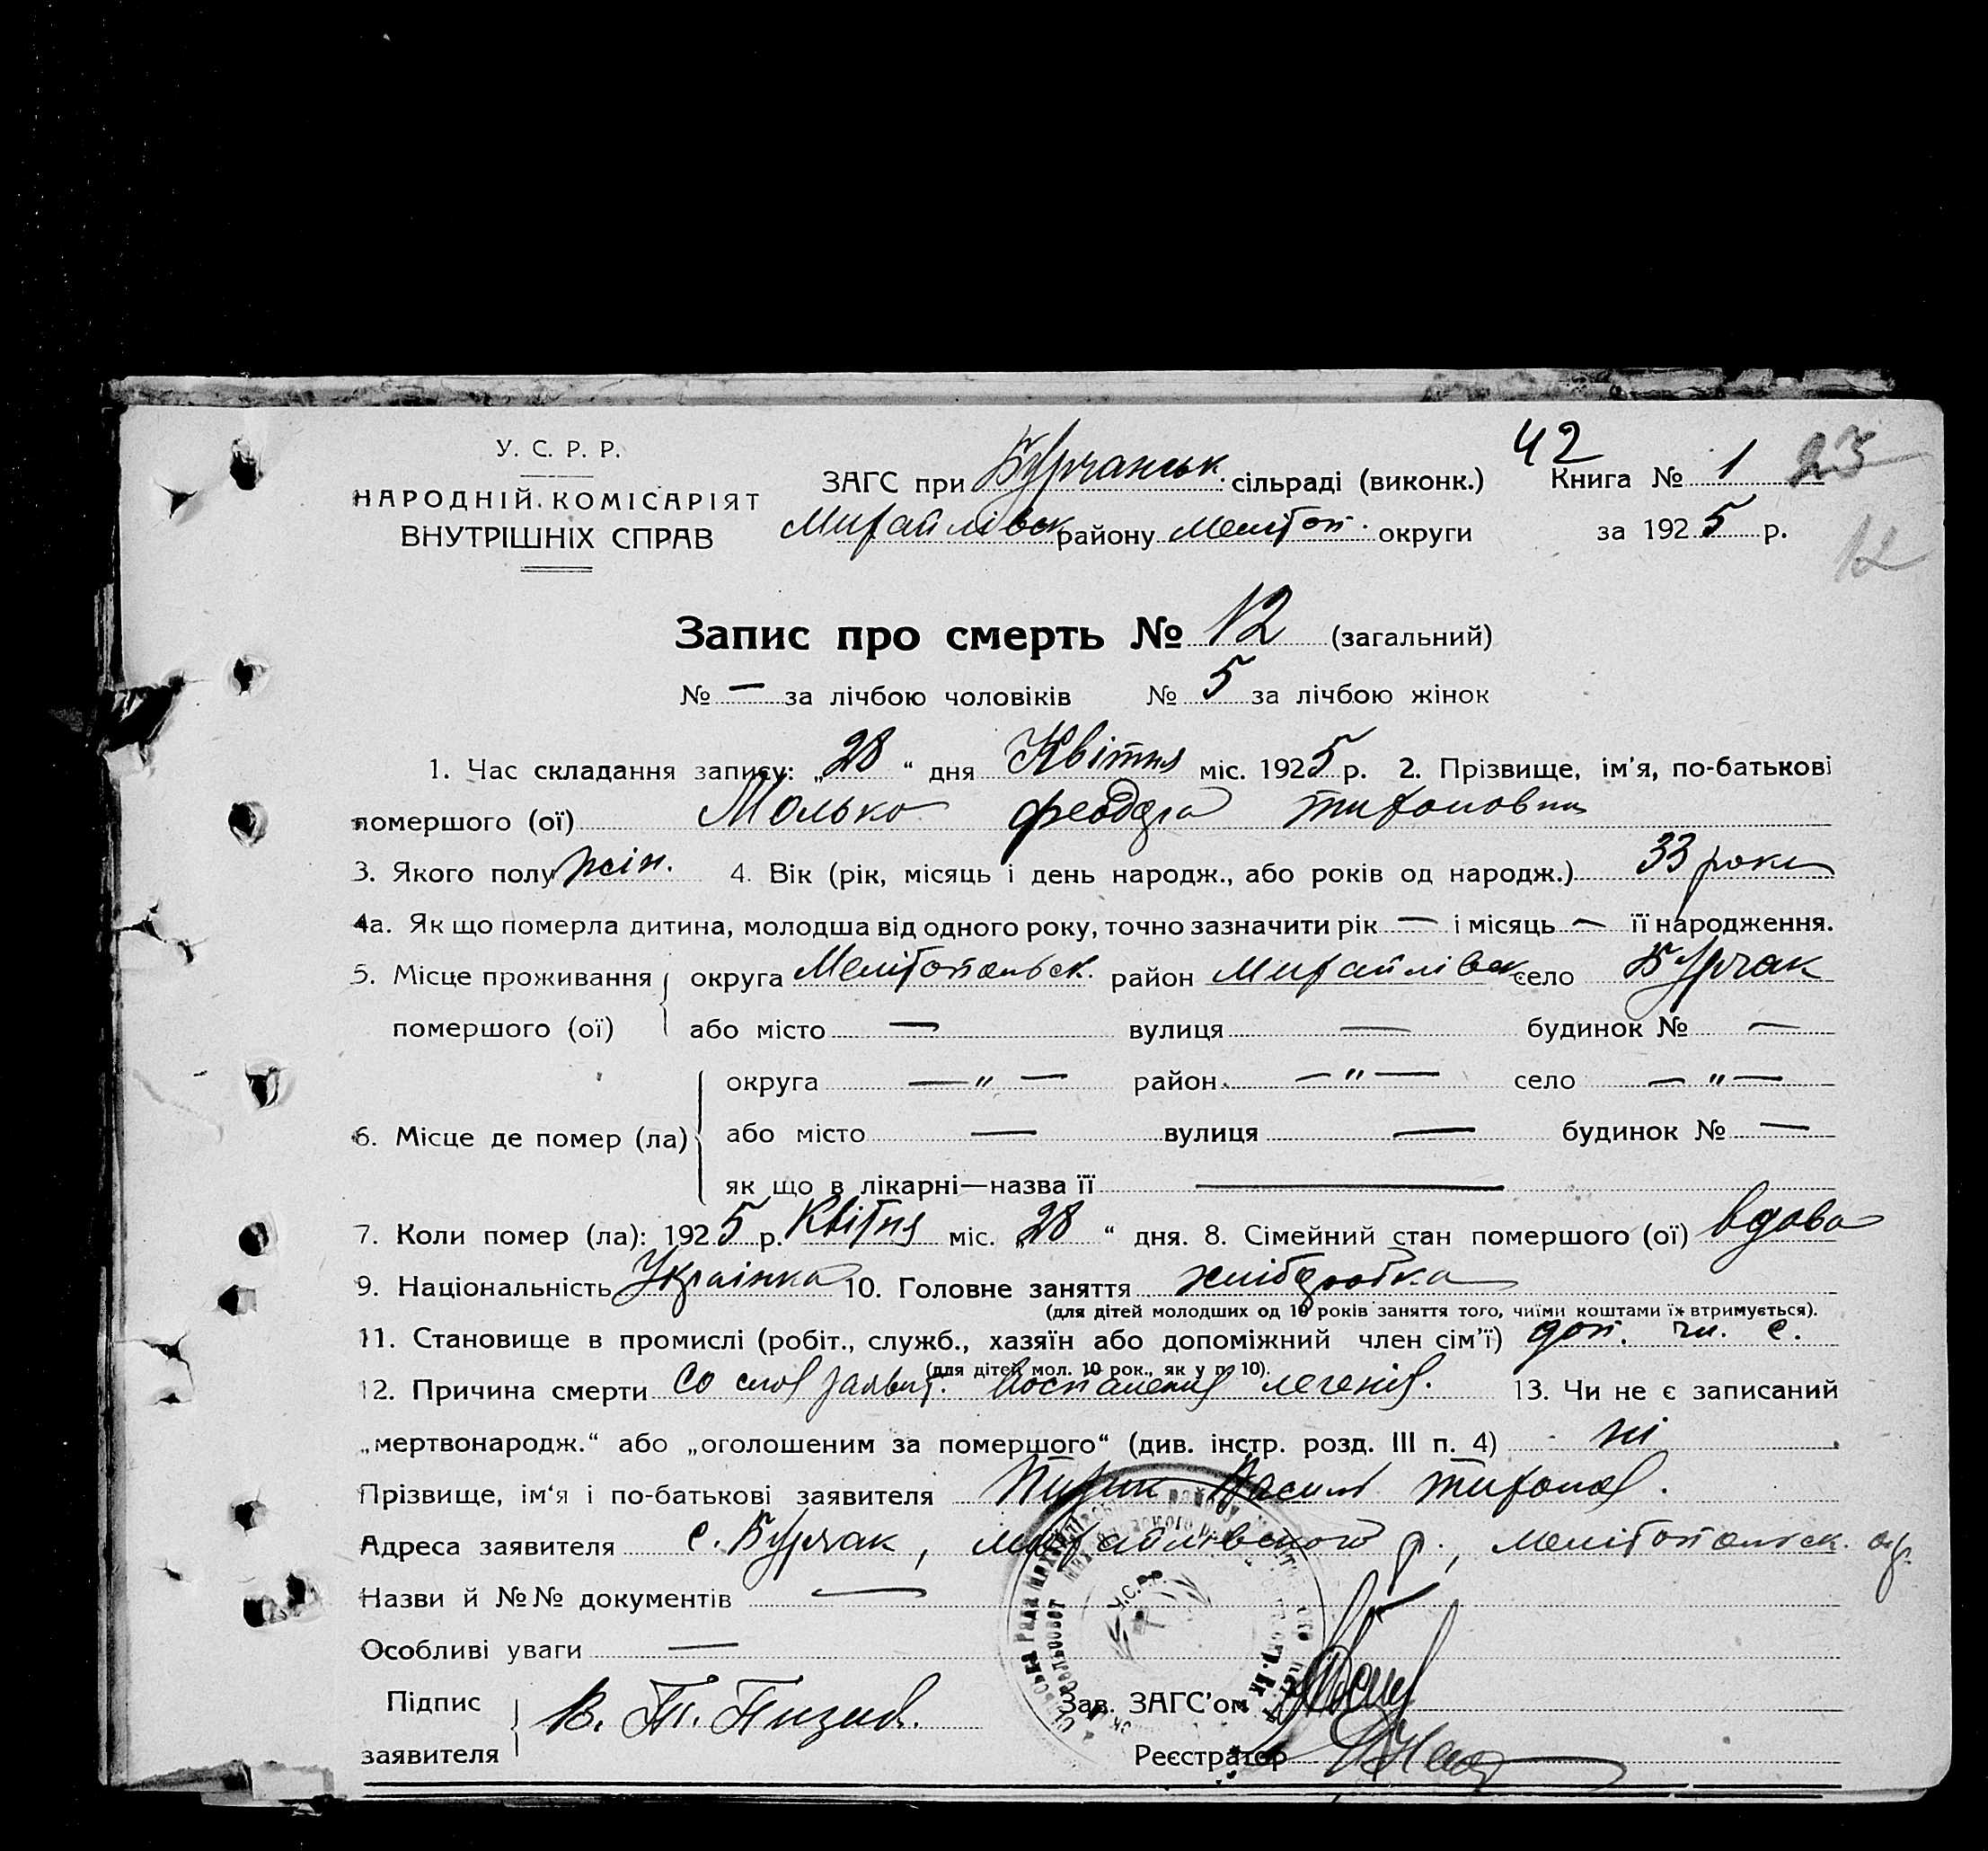 42
У. С. Р. Р.
НАРОДНІЙ КОМІСАРІЯТ
ВНУТРІШНІХ СПРАВ
ЗАГС при Бурчанськ. сільраді (виконк.) Книга № 1 23
Михайлівск району Мелітоп. округи за 1925 р.
12
Запис про смерть № 12 (загальний)
№ — за лічбою чоловіків № 5 за лічбою жінок
1. Час складання запису: „28“ дня Квітня міс. 1925 р. 2. Прізвище, ім'я, по-батькові
помершого (ої) Молько Феодора Тихоновна
3. Якого полу жін. 4. Вік (рік, місяць і день народж., або років од народж.) 33 роки
4а. Як що померла дитина, молодша від одного року, точно зазначити рік — і місяць — її народження.
5. Місце проживання округа Мелітопольск. район Михайлівск. село Бурчак
помершого (ої) або місто — вулиця — будинок № —
округа — „ — район — „ — село — „ —
6. Місце де помер (ла) або місто — вулиця — будинок № —
як що в лікарні—назва її —
7. Коли помер (ла): 1925 р. Квітня міс. „28“ дня. 8. Сімейний стан помершого (ої) вдова
9. Національність Українка 10. Головне заняття хліборобка
(для дітей молодших од 10 років заняття того, чиїми коштами їх втримується).
11. Становище в промислі (робіт., служб., хазяїн або допоміжний член сім'ї) доп. чл. с.
(для дітей мол. 10 рок., як у п. 10).
12. Причина смерти Со слов заявит. Воспаления легенів. 13. Чи не є записаний
„мертвонародж.“ або „оголошеним за помершого“ (див. інстр. розд. III п. 4) ні
Прізвище, ім'я і по-батькові заявителя Василь Тихонов.
Адреса заявителя с. Бурчак, Михайлівского р., Мелітопольск. окр.
Назви й №№ документів —
Особливі уваги —
У.С.Р.Р.
Підпис заявителя В. Т.
Зав. ЗАГС'ом
Реєстратор